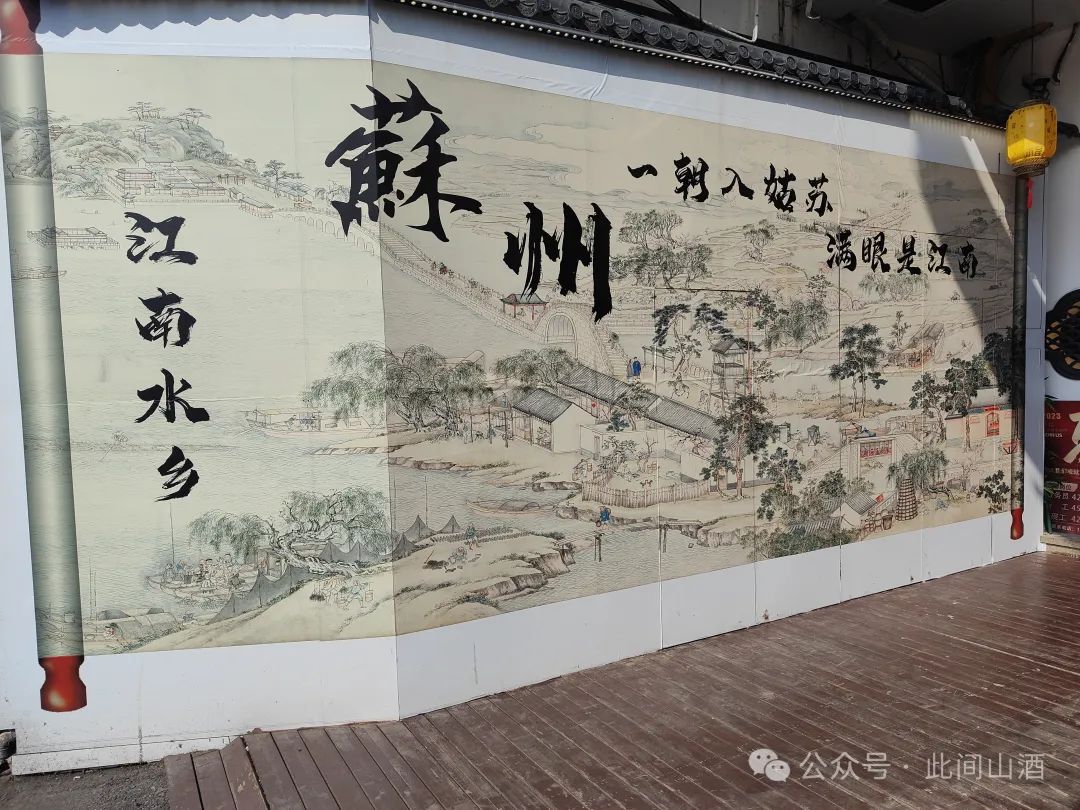 蘇州
江南水乡
一朝入姑苏
满眼是江南
2023
公众号 · 此间山酒